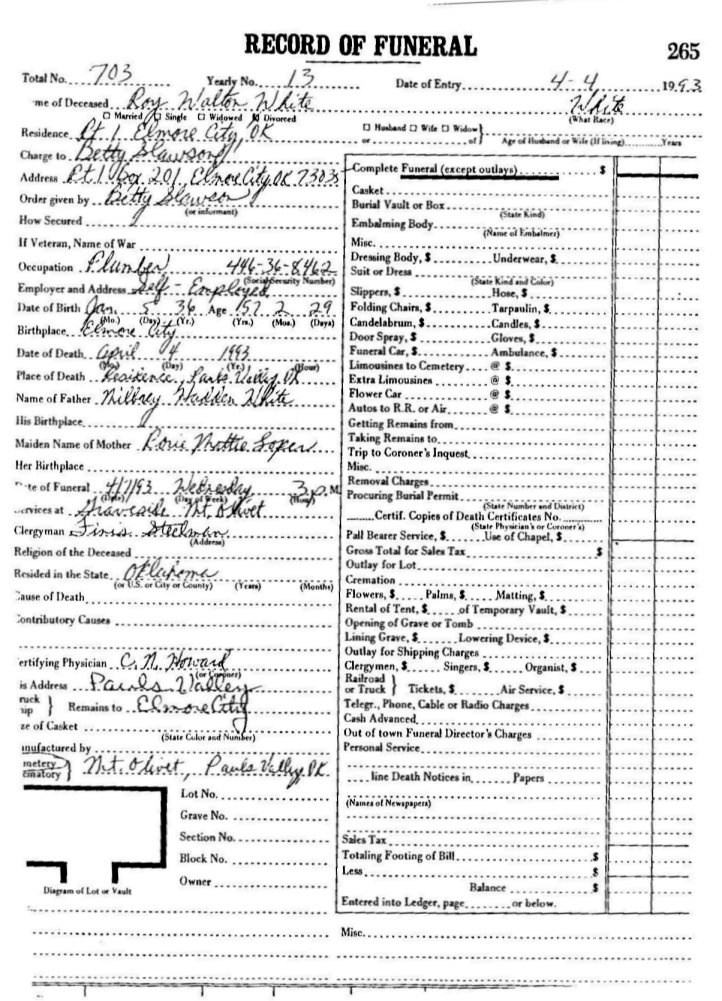 RECORD OF FUNERAL
265
Total No. 703 Yearly No. 13 Date of Entry 4-4 1993
me of Deceased Roy Walton White White
(What Race)
☐ Married ☐ Single ☐ Widowed ☑ Divorced
Residence Rt. 1 Elmore City, OK
☐ Husband ☐ Wife ☐ Widow
or of Age of Husband or Wife (If living) Years
Charge to Betty Slawson
Address Rt 1 Box 201, Elmore City, OK 7303
Order given by Betty Slawson
(or informant)
How Secured
If Veteran, Name of War
Occupation Plumber 446-36-8462
(Social Security Number)
Employer and Address Self-Employed
Date of Birth Jan. 5 36 Age 57 2 29
(Mo.) (Day) (Yr.) (Yrs.) (Mos.) (Days)
Birthplace Elmore City
Date of Death April 4 1993
(Mo.) (Day) (Yr.) (Hour)
Place of Death Residence, Pauls Valley OK
Name of Father Milbrey Hadden White
His Birthplace
Maiden Name of Mother Mattie Soper
Her Birthplace
te of Funeral 4/7/93 Wednesday 3 p.M
(Date) (Day of Week) (Hour)
ervices at Graveside Mt. Olivet
Clergyman Finis Steelman
(Address)
Religion of the Deceased
Resided in the State Oklahoma
(or U.S. or City or County) (Years) (Months)
Cause of Death
Contributory Causes
ertifying Physician C. N. Howard
(or Coroner)
is Address Pauls Valley
ruck
ip Remains to Elmore City
ze of Casket
(State Color and Number)
anufactured by
metery
ematory Mt. Olivet, Pauls Valley, OK
Lot No.
Grave No.
Section No.
Block No.
Owner
Diagram of Lot or Vault
Complete Funeral (except outlays) $
Casket
Burial Vault or Box
(State Kind)
Embalming Body
(Name of Embalmer)
Misc.
Dressing Body, $ Underwear, $
Suit or Dress
(State Kind and Color)
Slippers, $ Hose, $
Folding Chairs, $ Tarpaulin, $
Candelabrum, $ Candles, $
Door Spray, $ Gloves, $
Funeral Car, $ Ambulance, $
Limousines to Cemetery @ $
Extra Limousines @ $
Flower Car @ $
Autos to R.R. or Air @ $
Getting Remains from
Taking Remains to
Trip to Coroner's Inquest
Misc.
Removal Charges
Procuring Burial Permit
(State Number and District)
Certif. Copies of Death Certificates No.
(State Physician's or Coroner's)
Pall Bearer Service, $ Use of Chapel, $
Gross Total for Sales Tax $
Outlay for Lot
Cremation
Flowers, $ Palms, $ Matting, $
Rental of Tent, $ of Temporary Vault, $
Opening of Grave or Tomb
Lining Grave, $ Lowering Device, $
Outlay for Shipping Charges
Clergymen, $ Singers, $ Organist, $
Railroad
or Truck Tickets, $ Air Service, $
Telegr., Phone, Cable or Radio Charges
Cash Advanced
Out of town Funeral Director's Charges
Personal Service
line Death Notices in Papers
(Names of Newspapers)
Sales Tax
Totaling Footing of Bill $
Less $
Balance $
Entered into Ledger, page or below.
Misc.